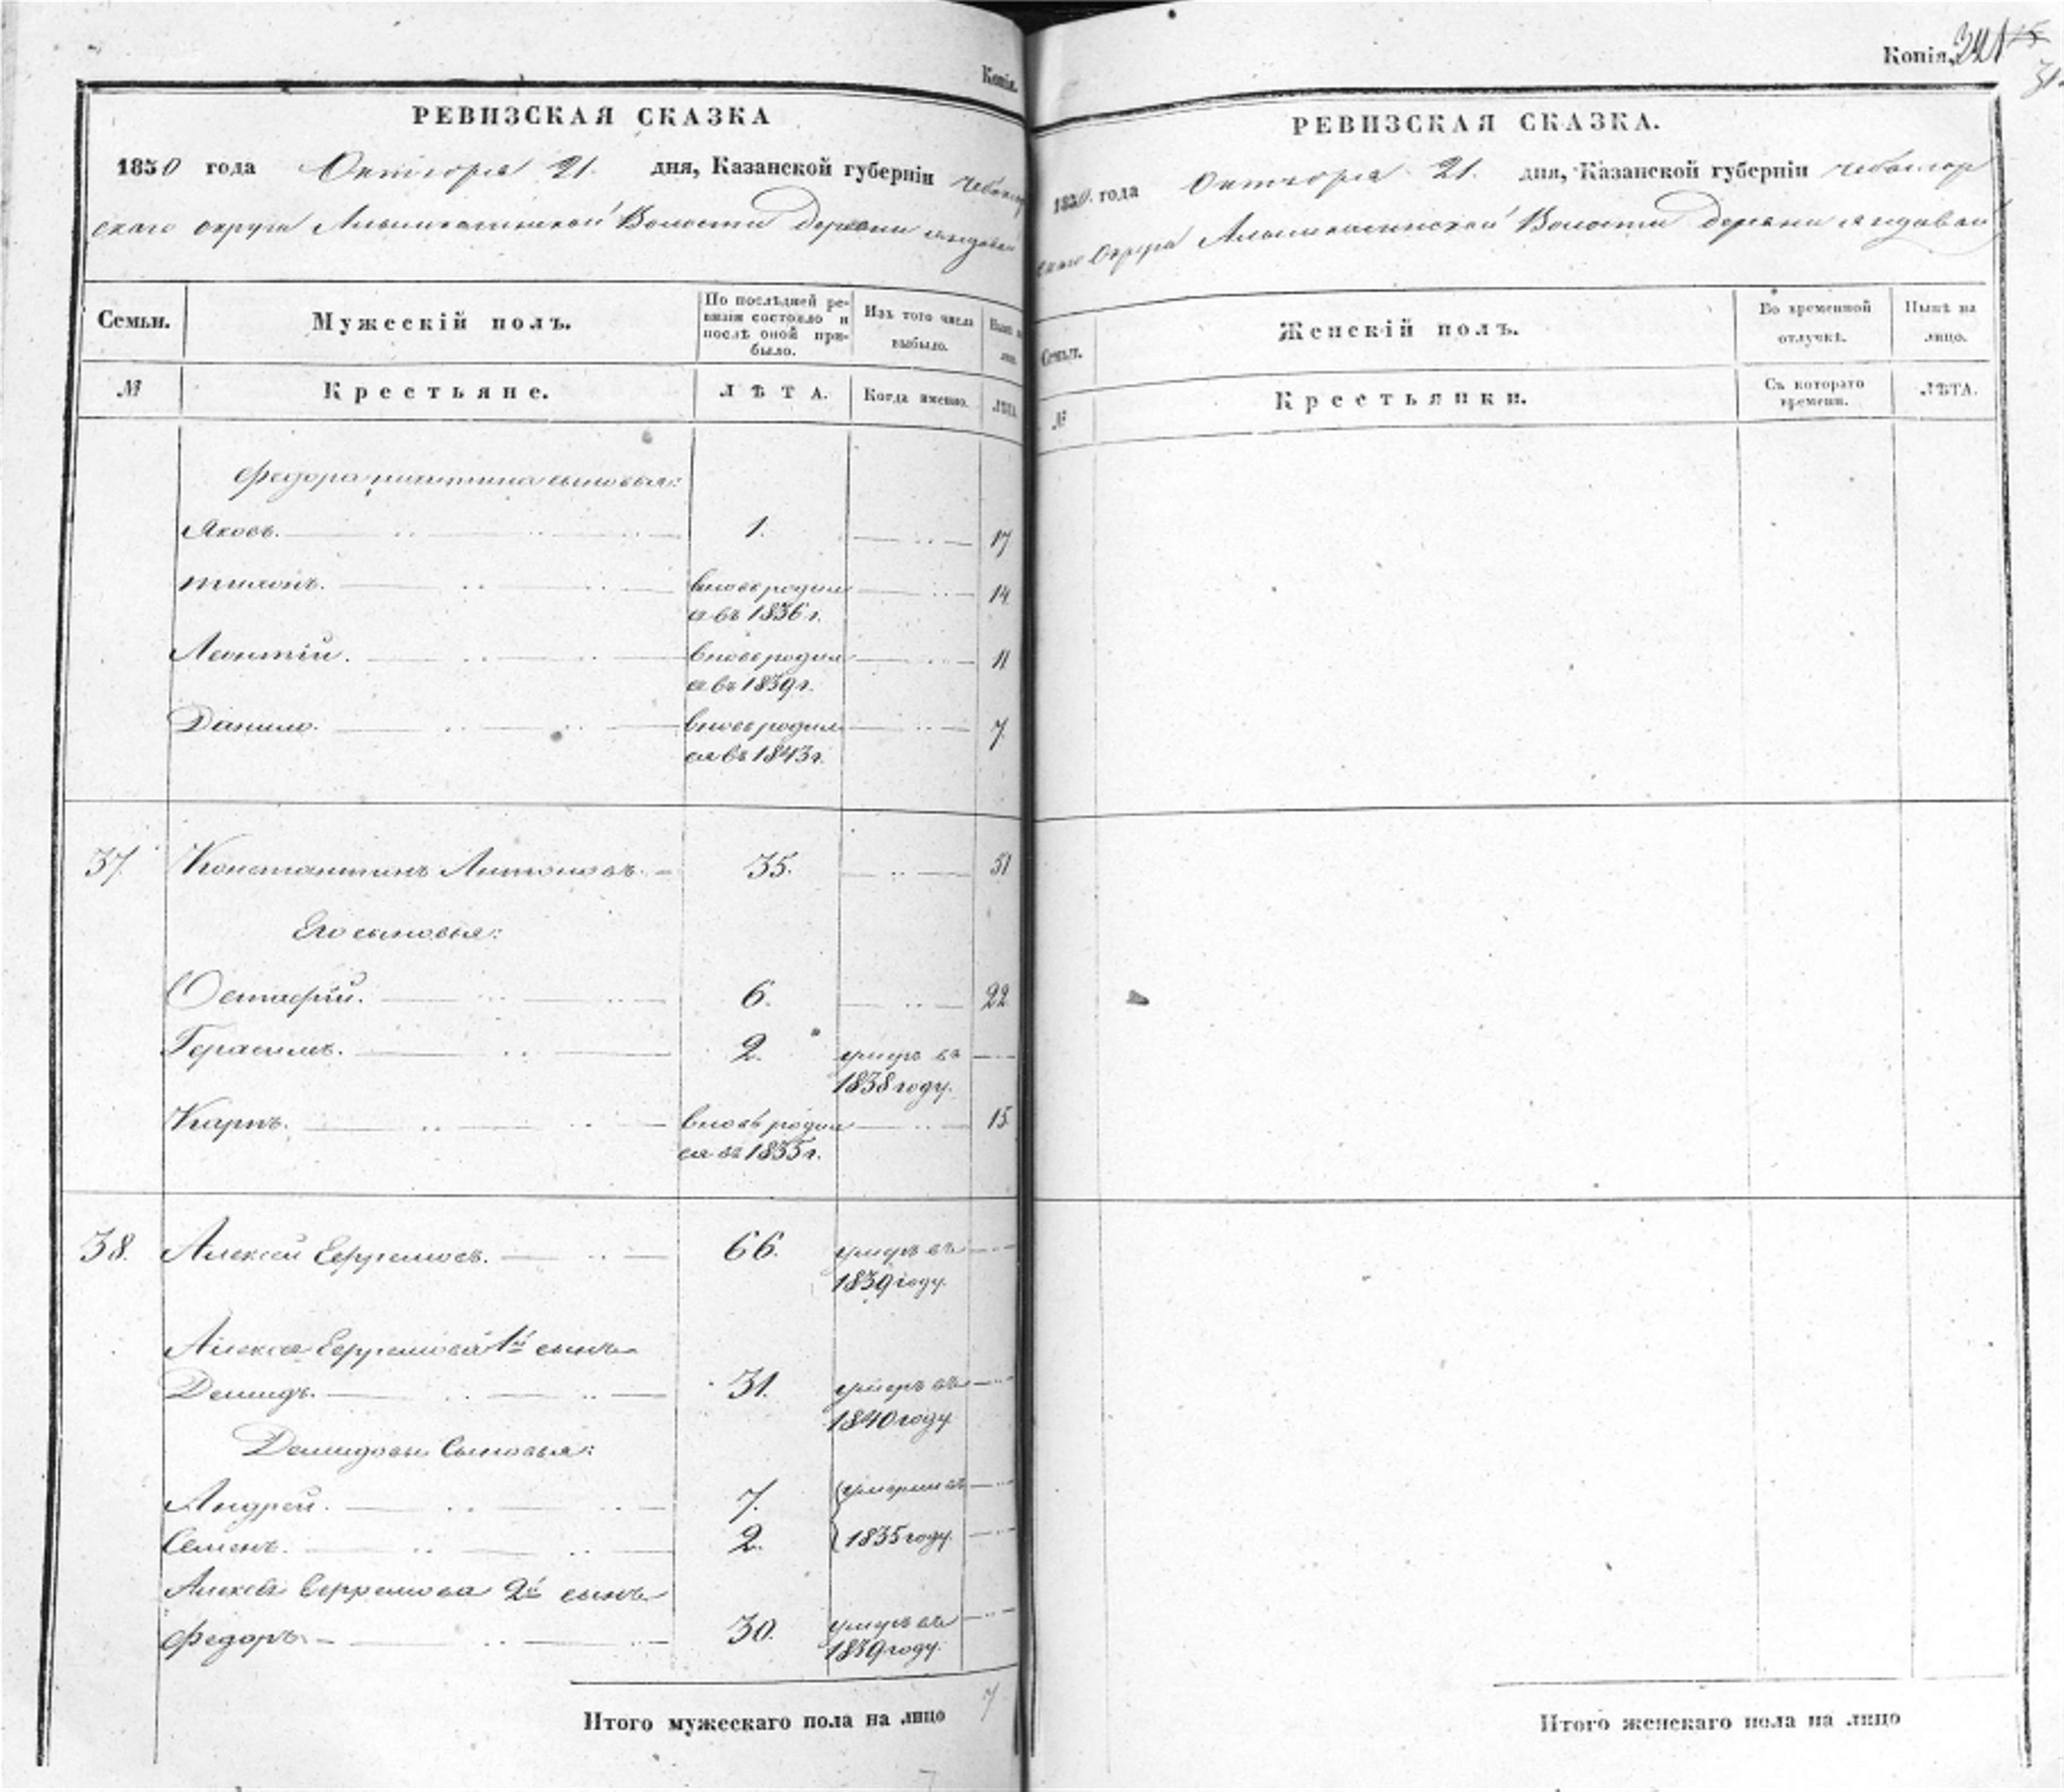 Копія.
РЕВИЗСКАЯ СКАЗКА
1850 года Октября 21. дня, Казанской губерніи Чебоксар
скаго округа Волости деревни
Семьи. Мужескій полъ. По послѣдней ре- Изъ того числа Нынѣ на
визіи состояло и выбыло. лицо.
послѣ оной при-
было.
№ Крестьяне. ЛѢТА. Когда именно. ЛѢТА.
Федора Никитина сыновья:
Яковъ. 1. 17
Тихонъ. вновь родил 14
ся въ 1836 г.
Леонтій. вновь родил 11
ся въ 1839 г.
Данило. вновь родил 7
ся въ 1843 г.
37. Константинъ Антоновъ 35. 51
Его сыновья:
Остафій. 6. 22
Герасимъ. 2. умеръ въ
1838 году.
Карпъ. вновь родил 15
ся въ 1835 г.
38. Алексей Ефремовъ. 66. умеръ въ
1839 году.
Алексея Ефремова 1й сынъ
Демидъ. 31. умеръ въ
1840 году
Демидовы Сыновья:
Андрей. 7. умерли въ
Семенъ. 2. 1835 году.
Алексея Ефремова 2й сынъ
Федоръ 30. умеръ въ
1839 году.
Итого мужескаго пола на лицо 7
Копія.
РЕВИЗСКАЯ СКАЗКА.
1850 года Октября 21. дня, Казанской губерніи Чебоксар
скаго Округа Волости деревни
Семьи. Женскій полъ. Во временной Нынѣ на
отлучкѣ. лицо.
№ Крестьянки. Съ котораго ЛѢТА.
времени.
Итого женскаго пола на лицо